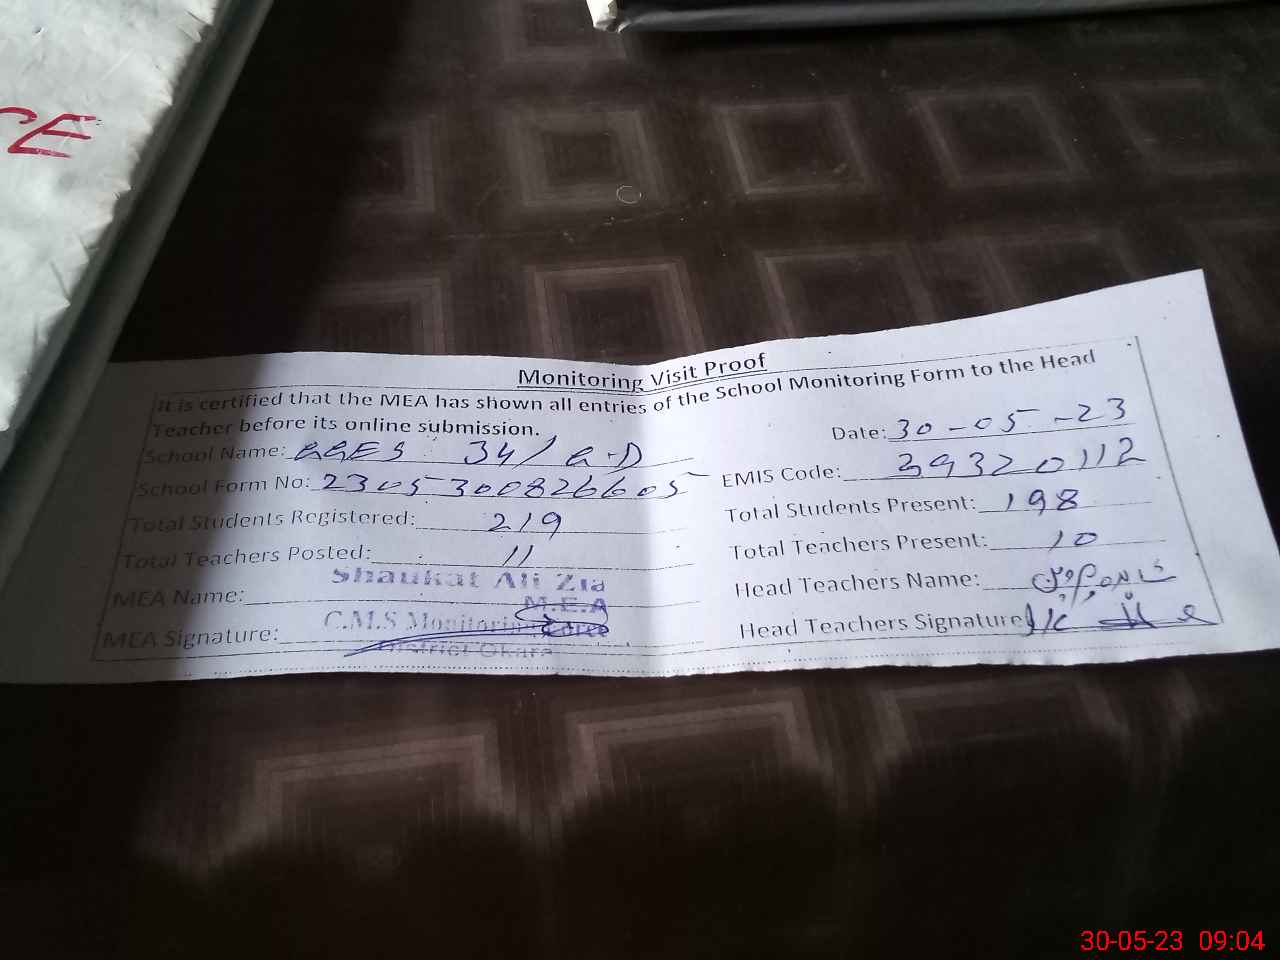 CE
Monitoring Visit Proof
It is certified that the MEA has shown all entries of the School Monitoring Form to the Head
Teacher before its online submission.
Date: 30-05-23
School Name: GGES 34/G.D
EMIS Code: 39320112
School Form No: 2305300826605
Total Students Present: 198
Total Students Registered: 219
Total Teachers Present: 10
Total Teachers Posted: 11
Head Teachers Name:
MEA Name: Shaukat Ali Zia
M.E.A
Head Teachers Signature
MEA Signature: C.M.S Monitoring Force
District Okara
30-05-23 09:04